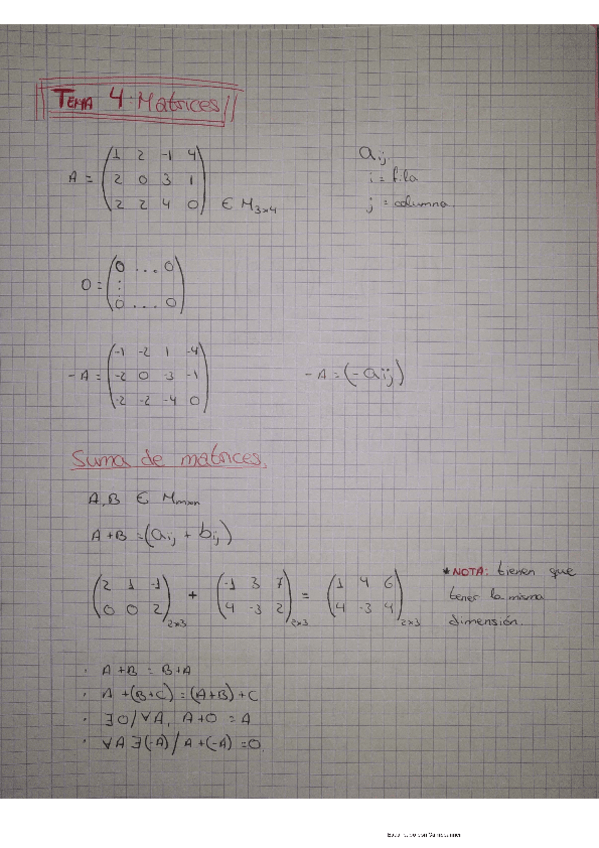 TEMA 4. Matrices
A = (1 2 -1 4
2 0 3 1
2 2 4 0) ∈ M3x4
aij.
i = fila
j = columna
O = (0 ... 0
⋮
0 ... 0)
-A = (-1 -2 1 -4
-2 0 -3 -1
-2 -2 -4 0)
-A = (-aij)
Suma de matrices.
A,B ∈ Mmxn
A+B = (aij + bij)
(2 1 -1
0 0 2)2x3 + (-1 3 7
4 -3 2)2x3 = (1 4 6
4 -3 4)2x3
* NOTA: tienen que
tener la misma
dimensión.
· A+B = B+A
· A+(B+C) = (A+B)+C
· ∃O/∀A, A+O = A
· ∀A ∃(-A)/A+(-A) = O.